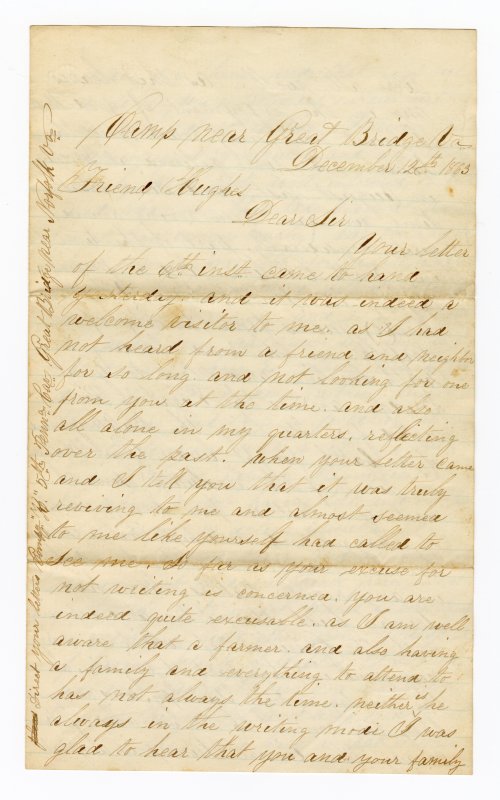 Camp near Great Bridge Va
December 26th 1863
Friend Hughs
Dear Sir
Your letter
of the 6th inst. came to hand
yesterday. and it was indeed a
welcome visitor to me. as I had
not heard from a friend and neighbor
for so long and not looking for one
from you at the time. and also
all alone in my quarters. reflecting
over the past. when your letter came
and I tell you that it was truly
reviving to me and almost seemed
to me like yourself had called to
see me. So far as your excuse for
not writing is concerned. you are
indeed quite excusable. as I am well
aware that a farmer. and also having
a family and everything to attend to
has not always the time. neither is he
always in the writing mode I was
glad to hear that you and your family
Direct your letters Comp "H." 5th Penna. Cav. Great Bridge near Norfolk Va